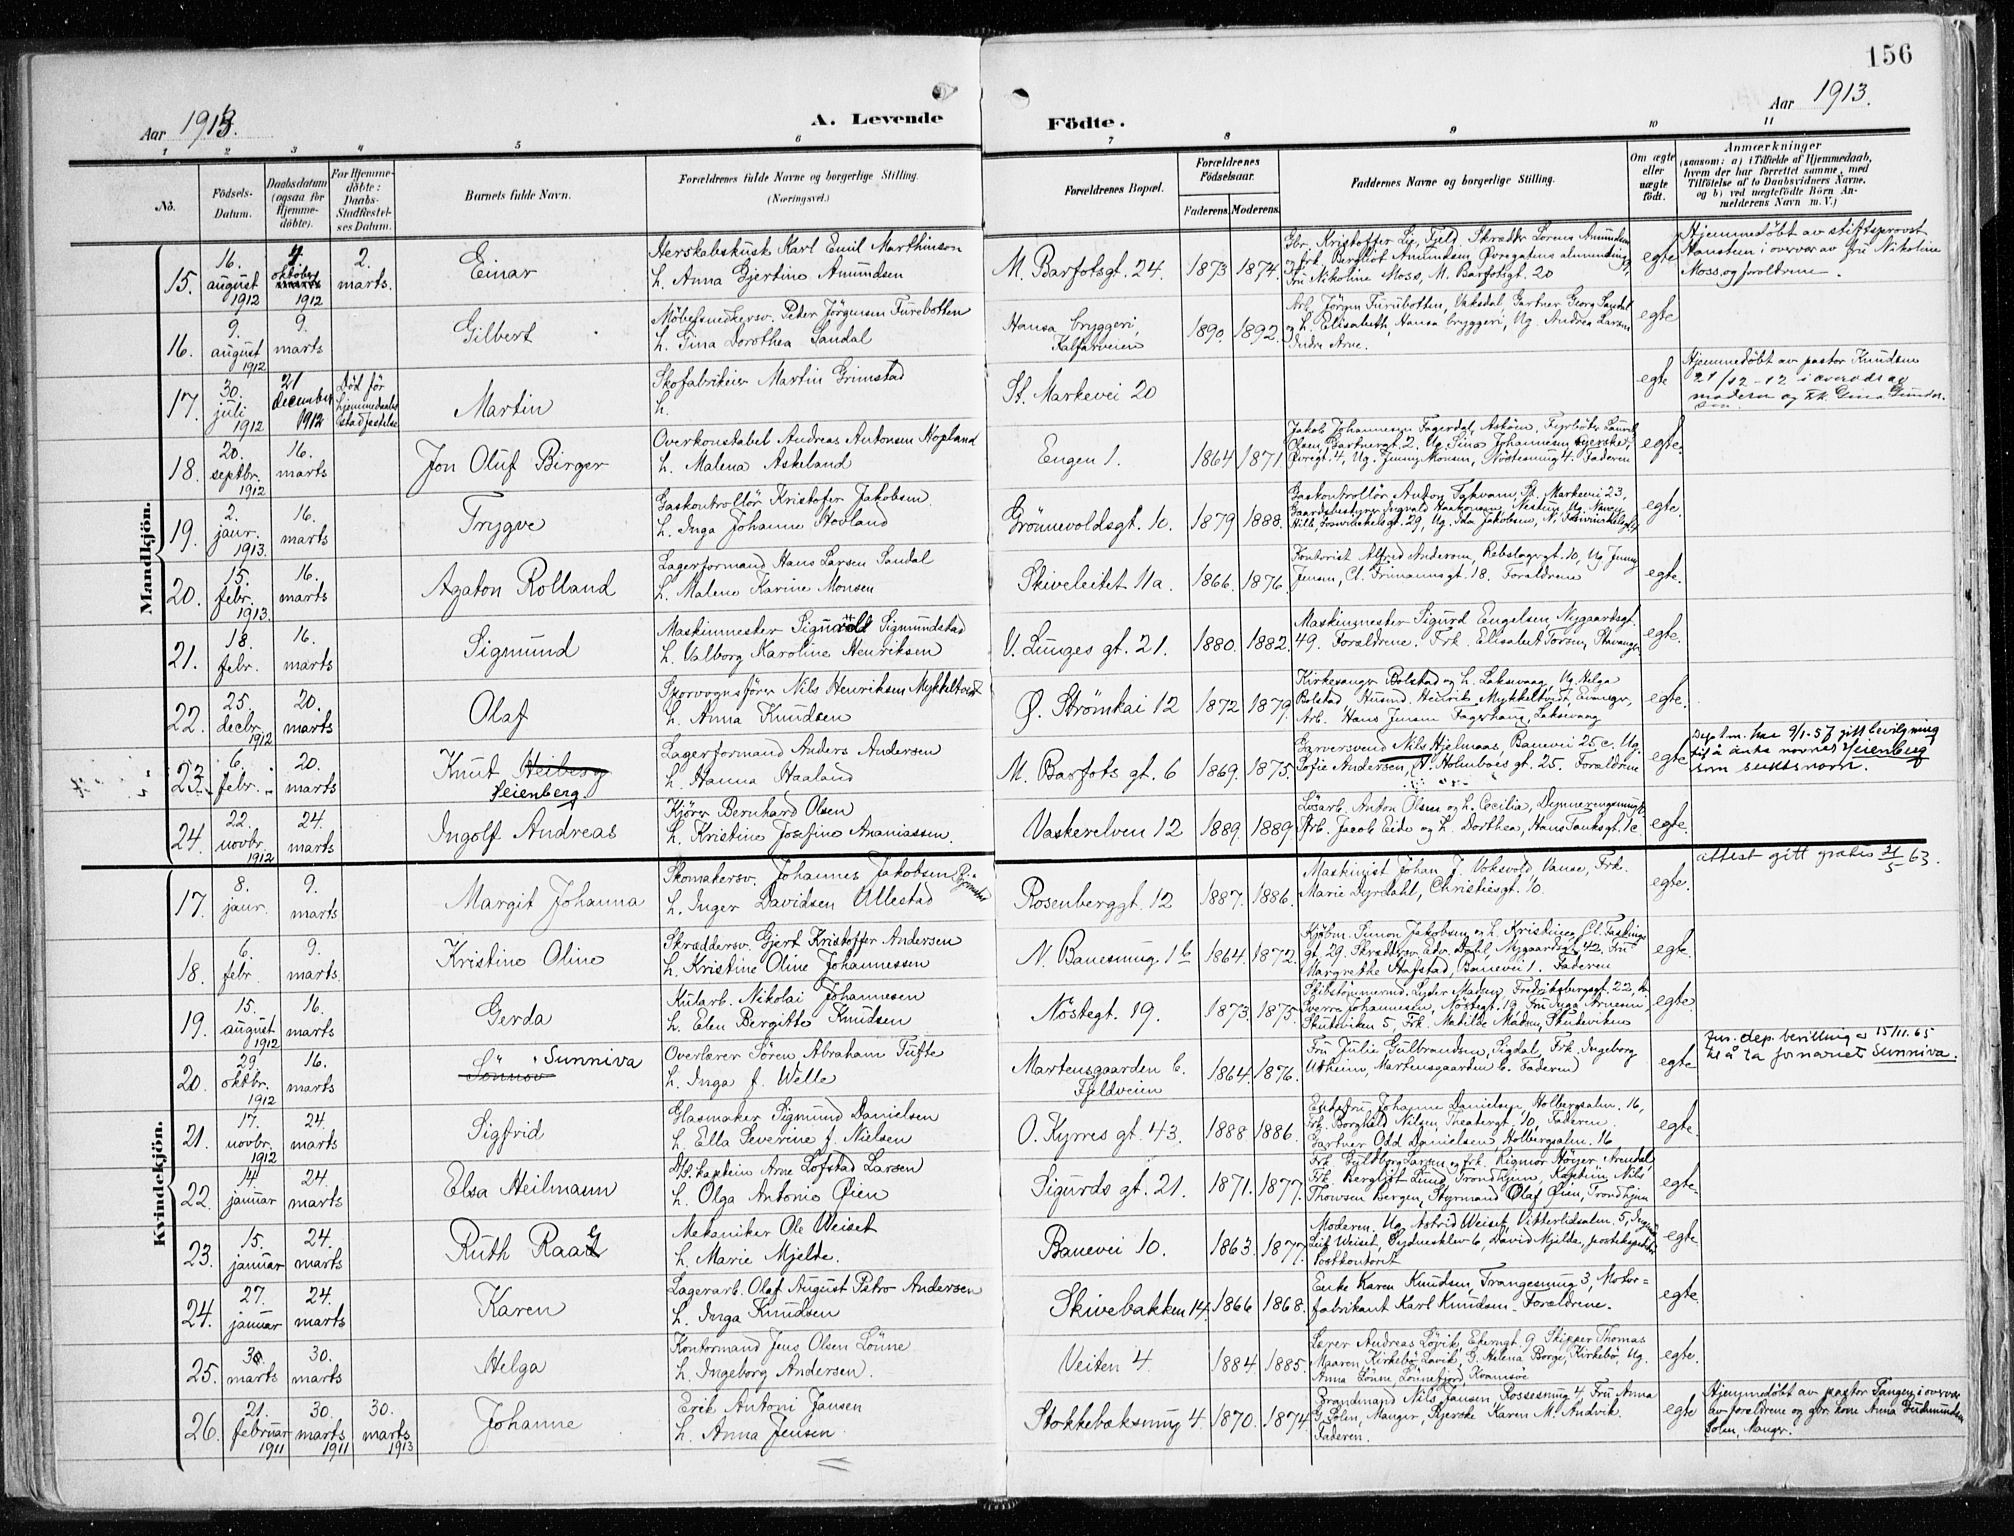 156
Aar 1913.
A. Levende
Födte.
Aar 1913.
1 2 3 4 5 6 7 8 9 10 11
No.
Födsels-Datum.
Daabsdatum (ogsaa for Hjemme-döbte).
For Hjemme-döbte: Daabs-Stadfæstel-ses Datum.
Barnets fulde Navn.
Forældrenes fulde Navne og borgerlige Stilling.
(Næringsvei.)
Forældrenes Bopæl.
Forældrenes Födselsaar.
Faderens. Moderens.
Faddernes Navne og borgerlige Stilling.
Om ægte eller uægte födt.
Anmærkninger
(saasom: a) i Tilfælde af Hjemmedaab, hvem der har forrettet samme, med Tilföielse af to Daabsvidners Navne, og b) ved uægtefödte Börn An-melderens Navn m. V.)
Mandkjön.
15. 16. august 1912 4 oktober 1912 2. marts. Einar
Herskabskusk Karl Emil Marthinson
h. Anna Gjertine Amundsen
M. Barfotsgt. 24. 1873 1874.
Fru Nikoline Moss, M. Barfotsgt. 20
egte
Hjemmedøbt av stiftsprovst
Hanssen i overvær av fru Nikoline
Moss, og foreldrene.
16. 9. august 1912 9. marts Gilbert
Møbelsnedkersv. Peder Jörgensen Furebotten
h. Gina Dorothea Sandal
Hansa bryggeri, Kalfarveien 1890. 1892.
Arb. Jörgen Furubotten, Vaksdal, Gartner Georg Sandal
og h. Elisabeth, Hansa bryggeri, Ug. Andrea Larsen
Indre Arne.
egte
17. 30. juli 1912 21 december 1912 Død før hjemmedaabs stadfestelse Martin
Skofabrikeier Martin Grimstad
h.
St. Markevei 20
egte
Hjemmedøbt av pastor Knudsen
21/12-12 i overvær av
moderen og frk. Gina Gunder-
sen.
18. 20. septbr. 1912 16. marts Jon Oluf Birger
Overkonstabel Andreas Antonsen Hopland
h. Malena Askeland
Engen 1. 1864 1871
Jakob Johannesen Fagerdal, Askøen, Fyrbøter Laurits
Olsen, Gartnergt. 2. Ug. Sina Johannesen, syerske,
Øvregt. 4, Ug. Jenny Monsen, Nöstesmug 4. Faderen
egte.
19. 2. janr. 1913. 16. marts Trygve
Gaskontrollör Kristofer Jakobsen
h. Inga Johanne Hovland
Grönnevoldsgt. 10. 1879 1888.
Gaskontrollör Anton Tokvam, St. Markevei 23,
egte.
20. 15. febr. 1913. 16. marts Agaton Rolland
Lagerformand Hans Larsen Sandal
h. Malene Karine Monsen
Skiveleitet 11a. 1866. 1876.
Kontorist Alfred Andersen, Rebslagergt. 10, Ug Jenny
Jensen, Cl. Frimannsgt. 18. Foreldrene
egte.
21. 18. febr. 16. marts Sigmund
Maskinmester Sigurd Sigmundstad
h. Valborg Karoline Henriksen
V. Lunges gt. 21. 1880. 1882.
Maskinmester Sigurd Engelsen, Nygaardsgt.
49. Foreldrene. Frk. Elisabet Torsen, Stavanger
egte.
22. 25. decbr. 1912 20. marts Olaf
Sporvognsförer Nils Henriksen Mykkeltvedt
h. Anna Knudsen
Ø. Strömkai 12 1872 1879.
Kirkesanger Bolstad og h. Laksevaag, Ug. Helga
Bolstad, Husmd. Henrik Mykkeltvedt, Evanger,
Arb. Hans Jensen Fagerhaug, Laksevaag
egte.
23. 6. febr. 20. marts Knut Heiberg Heienberg
Lagerformand Anders Andersen
h. Hanna Haaland
M. Barfots gt. 6 1869. 1875.
Garversvend Nils Hjelmaas, Banevei 25c. Ug.
Sofie Andersen, N. Holmboes gt. 25. Foreldrene
egte
Dep.t m. har 9/1-57 gitt bevilgning
til å anta navnet Heienberg
som slektsnavn.
24. 22. novbr. 1912 24. marts Ingolf Andreas
Kjörer Bernhard Olsen
h. Kristine Josefine Ananiassen.
Vaskerelven 12 1889. 1889
Lösarb. Anton Olsen og h. Cecilia,
Arb. Jacob Eide og h. Dorthea, Hans Tanksgt. 1c
egte.
Kvindekjön.
attest gitt gratis 21/5 63.
17. 8. janr. 9. marts Margit Johanna
Skomakersv. Johannes Jakobsen
h. Inger Davidsen Ullestad
Rosenberggt. 12 1887. 1886.
Maskinist Johan J. Voksvold, Vanse, Frk.
Marie Dyrdahl, Christiesgt. 10.
egte.
18. 6. febr. 9. marts. Kristine Oline
Skræddersv. Gjert Kristoffer Andersen
h. Kristine Oline Johannessen
N. Banesmug. 1b 1864. 1872.
Kjøbm. Simon Jakobsen og h. Kristine, Cl. Fastings
gt. 29. Skrædersv. Edv. Dahl, Nygaardsgt. 42. Fru
Margrethe Hafstad, Banevei 1. Faderen
egte.
19. 15. august 1912 16. marts Gerda
Kularb. Nikolai Johannesen
h. Elen Bergitte Knudsen
Nöstegt. 19. 1873. 1875.
Skibstømmermd. Lyder Madsen, Fredriksbergsgt. 22,
Sverre Johannesen, Nöstegt. 19, Fru Inga Arnesen,
Skuteviken 5, Frk. Matilde Madsen, Skuteviken
egte
20. 29. oktbr. 1912 16. marts Sönnov Sunniva
Overlærer Sören Abraham Tufte
h. Inga f. Welle
Martensgaarden 6. Fjeldveien 1864. 1876.
Fru Julie Gulbrandsen, Sigdal, Frk. Ingeborg
Utheim, Martensgaarden 6. Faderen
egte
Jus. dep. bevilling av 15/11. 65
til å ta fornavnet Sunniva.
21. 17. novbr. 1912 24. marts Sigfrid
Glasmaker Sigmund Danielsen
h. Ella Severine f. Nielsen
O. Kyrres gt. 43. 1888 1886.
Enkefru Johanne Danielsen, Holbergsalm. 16,
Frk. Borghild Nilsen, Theatergt. 10, Faderen.
Gartner Odd Danielsen, Holbergsalm. 16
egte.
22. 14 januar 24. marts Elsa Heilmann
Ds. kaptein Arne Lofstad Larsen
h. Olga Antonie Øien
Sigurds gt. 21. 1871. 1877.
Frk. Gyldborg Larsen og frk. Rigmor Höyer, Arendal,
Frk. Bergljot Lund, Trondhjem, Kaptein Nils
Thowsen Bergen, Styrmand Olaf Øien, Trondhjem
egte.
23. 15. januar 24. marts Ruth Raag
Mekaniker Ole Weiset
h. Marie Mjelde.
Banevei 10. 1863. 1877.
Moderen. Ug. Astrid Weiset, Vitterlidsalm. 5,
Leif Weiset, Sydnesklev 6, David Mjelde, postekspeditör
Postkontoret
egte
24. 27. januar 24. marts Karen
Lagerarb. Olaf August Petro Andersen
h. Inga Knudsen
Skivebakken 14. 1866 1868.
Enke Karen Knudsen, Trangesmug 3, Motor-
fabrikant Karl Knudsen - Foreldrene.
egte.
25. 3. marts 30. marts Helga
Kontormand Jens Olsen Lönne
h. Ingeborg Andersen.
Veiten 4. 1884 1885.
Lærer Andreas Løvik, Ekerngt. 9, Skipper Thomas
Maaren, Kirkebö, Lavik, G. Helena Borge, Kirkebö, Ug.
Anna Lönne, Lönnefjord, Kvamsöe
egte.
26. 21. februar 1911 30. marts 1911 30. marts 1913 Johanne
Erik Antoni Jansen
h. Anna Jensen
Stokkebæksmug 4. 1870. 1874.
Brandmand Nils Jansen, Rossesmug 4, Fru Anna
G. Solen, Manger, Syerske Karen M. Andvik.
Faderen.
egte
Hjemmedøbt av pastor Tangen i overvær
av foreldrene og gbr. kone Anna Gudmundsen
Solen, Manger.